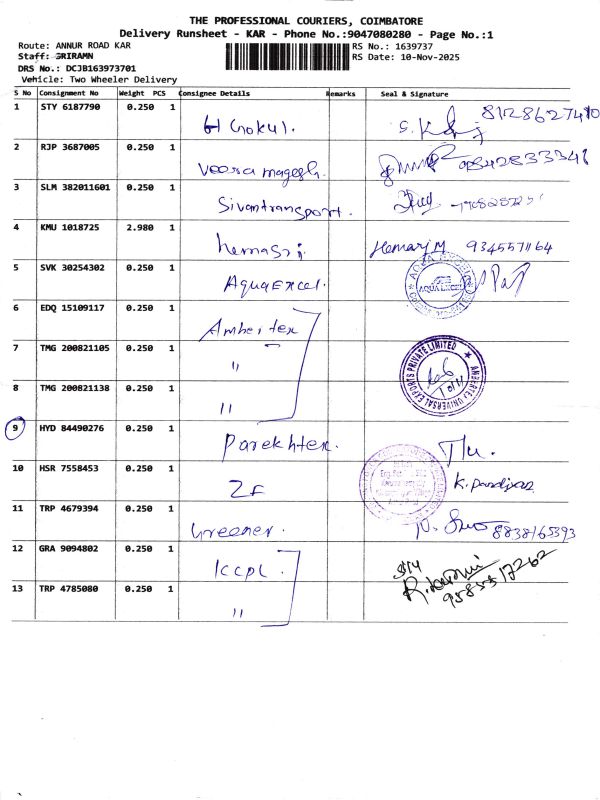 THE PROFESSIONAL COURIERS, COIMBATORE
Delivery Runsheet - KAR - Phone No.:9047080280 - Page No.:1
Route: ANNUR ROAD KAR RS No.: 1639737
Staff: SRIRAMN RS Date: 10-Nov-2025
DRS No.: DCJB163973701
Vehicle: Two Wheeler Delivery
S No Consignment No Weight PCS Consignee Details Remarks Seal & Signature
1 STY 6187790 0.250 1 Gokul. 8128627410
2 RJP 3687005 0.250 1 Veera magesh. 9842833341
3 SLM 382011601 0.250 1 Sivantransport.
4 KMU 1018725 2.980 1 hemasri. Hemarj M 934557164
5 SVK 30254302 0.250 1 AquaExcel. AQUA EXCEL
6 EDQ 15109117 0.250 1 Ambertex
7 TMG 200821105 0.250 1 " UNIVERSAL EXPORTS PRIVATE LIMITED
8 TMG 200821138 0.250 1 "
9 HYD 84490276 0.250 1 Parekhtex.
10 HSR 7558453 0.250 1 ZF K. Pandiyan
11 TRP 4679394 0.250 1 Greener. 8838165393
12 GRA 9094802 0.250 1 kccpl. 9585517262
13 TRP 4785080 0.250 1 "